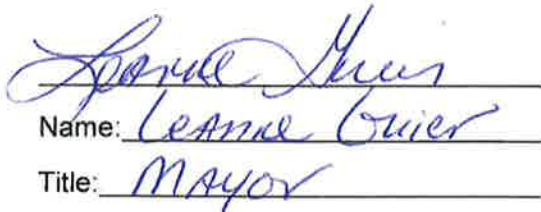 Leanne Guier
Name: Leanne Guier
Title: Mayor